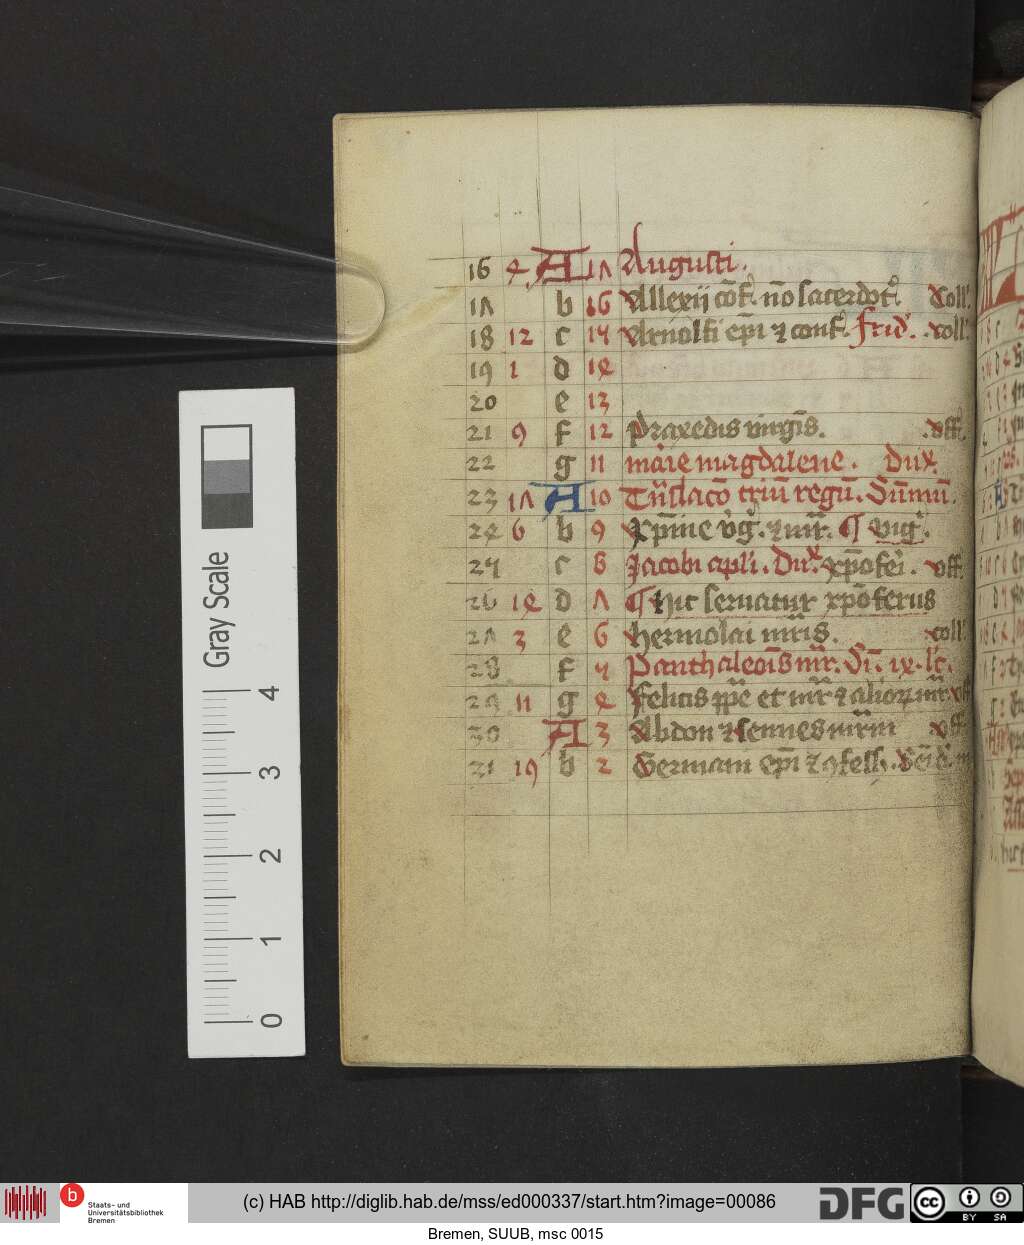 16 4 A 17 Augusti.
17 b 16 Allexii co̅f. no̅ sacerdot. Coll'.
18 12 c 15 Arnolfi ep̅i ⁊ conf. frid'. coll'.
19 1 d 14
20 e 13
21 9 f 12 Praxedis virgi̅s. off.
22 g 11 marie magdalene. Dux
23 17 A 10 triu̅ regu̅. Su̅mu̅.
24 6 b 9 Xp̅ine v̅g. ⁊ mr̅. ¶ vig'.
25 c 8 Jacobi apl̅i. Dux. xp̅oferi. off.
26 14 d 7 ¶ Hic seruatur xp̅oferus
27 3 e 6 Hermolai mr̅is. coll'
28 f 5 Panthaleo̅is mr̅. Si̅. ix. lc̅.
29 11 g 4 Felicis pp̅e et mr̅ ⁊ alioꝝ mr̅
30 A 3 Abdon ⁊ sennes mr̅m off
31 19 b 2 Germani ep̅i ⁊ ꝯfess.
Gray Scale
4
3
2
1
0
b Staats- und
Universitätsbibliothek
Bremen
(c) HAB http://diglib.hab.de/mss/ed000337/start.htm?image=00086
DFG
cc BY SA
Bremen, SUUB, msc 0015